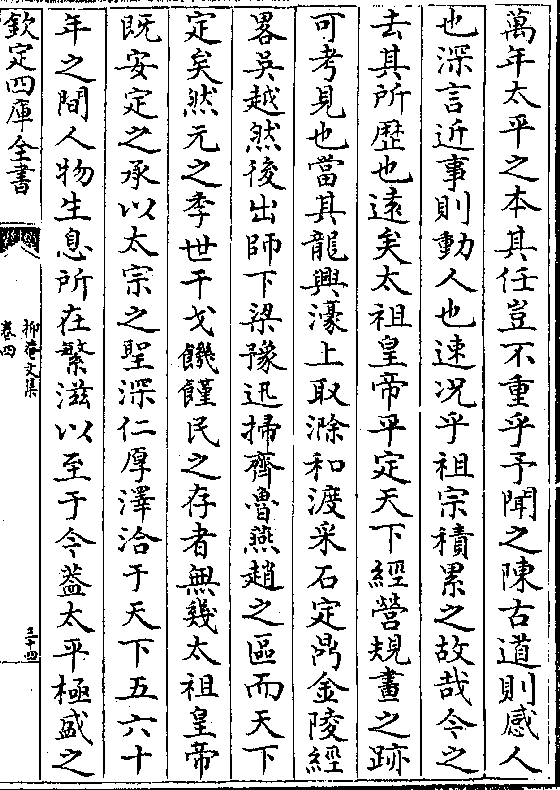 萬年太平之本其任豈不重乎予聞之陳古道則感人
也深言近事則動人也速况乎祖宗積累之故哉今之
去其所歴也遠矣太祖皇帝平定天下經營規畫之跡
可考見也當其龍興濠上取滁和渡采石定鼎金陵經
畧吳越然後出師下梁豫迅掃齊魯燕趙之區而天下
定矣然元之季世干戈饑饉民之存者無幾太祖皇帝
既安定之承以太宗之聖深仁厚澤洽于天下五六十
年之間人物生息所在繁滋以至于今葢太平極盛之
欽定四庫全書
抑菴文集
卷四
三十四